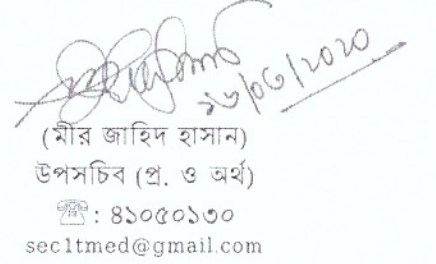 ১৬/০৬/২০২০
(মীর জাহিদ হাসান)
উপসচিব (প্র. ও অর্থ)
☎ : ৪১০৫০১৩০
sec1tmed@gmail.com